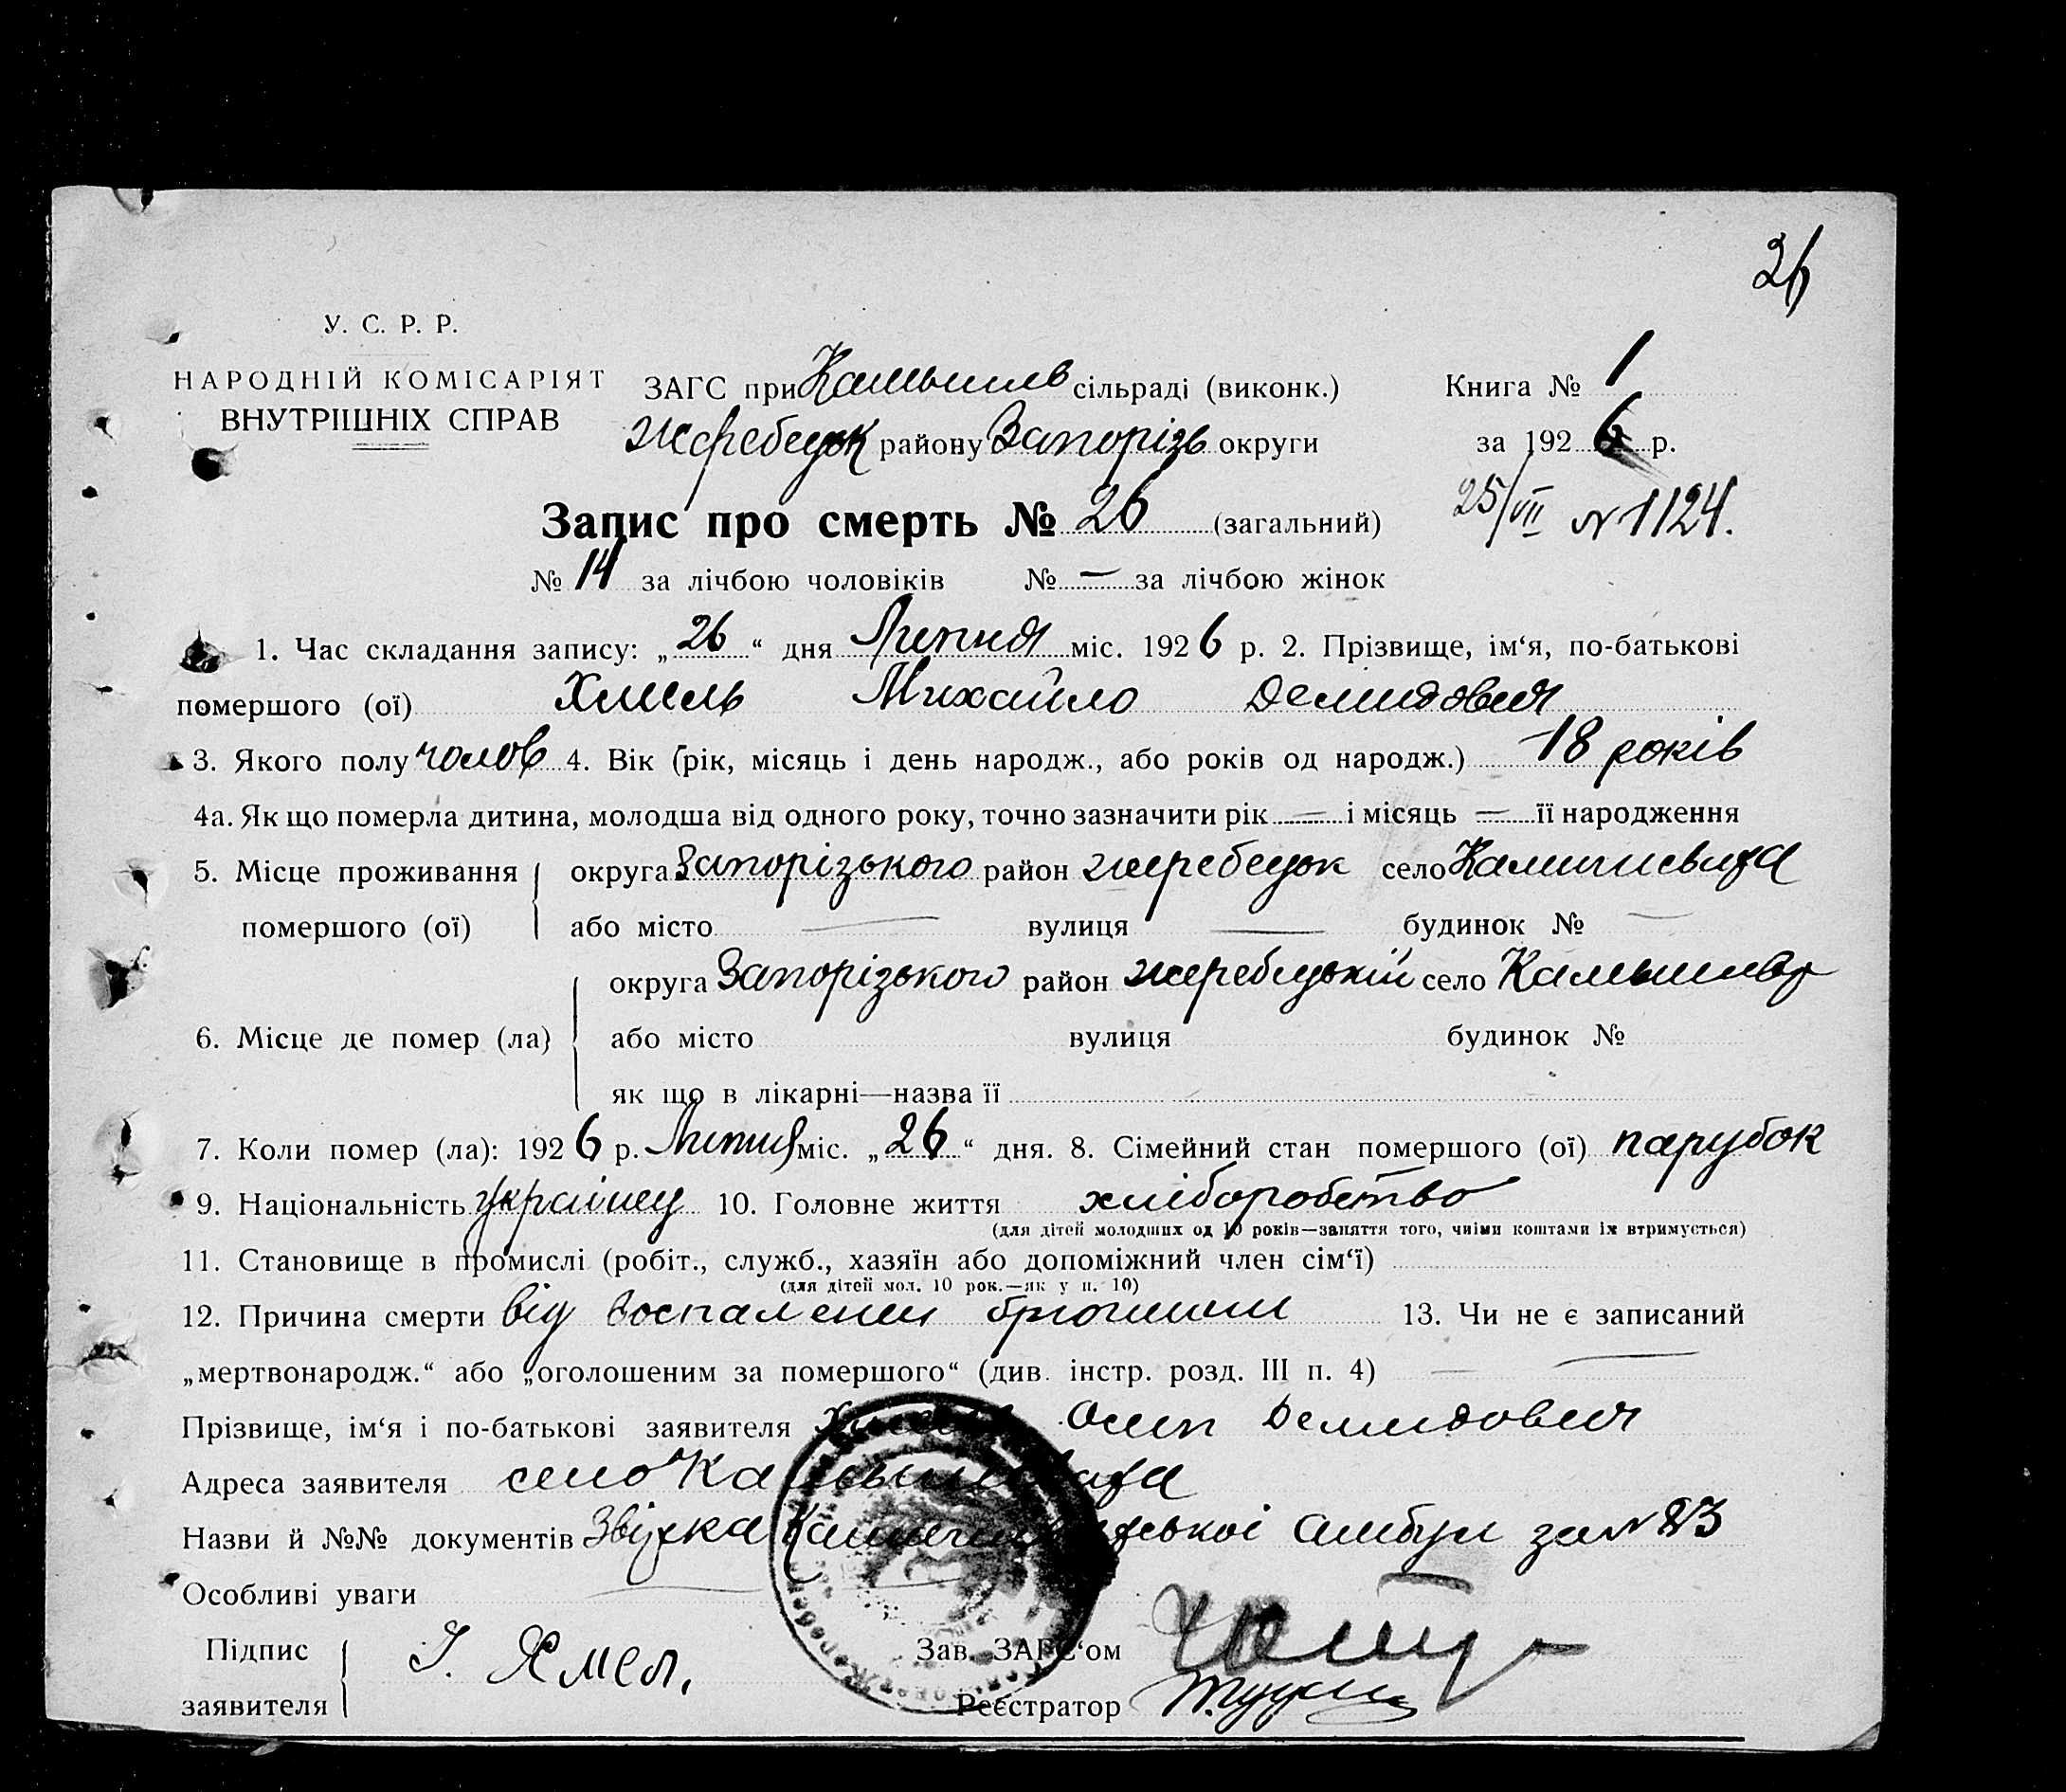 26
У. С. Р. Р.
НАРОДНІЙ КОМІСАРІЯТ
ВНУТРІШНІХ СПРАВ
ЗАГС при Камышив сільраді (виконк.)
Жеребецьк району Запорізь округи
Книга № 1
за 1926 р.
25/VII N 1124.
Запис про смерть № 26 (загальний)
№ 14 за лічбою чоловіків № — за лічбою жінок
1. Час складання запису: „26“ дня Липня міс. 1926 р. 2. Прізвище, ім‘я, по-батькові
помершого (ої) Хмель Михайло Демидович
3. Якого полу чолов 4. Вік (рік, місяць і день народж., або років од народж.) 18 років
4а. Як що померла дитина, молодша від одного року, точно зазначити рік — і місяць — її народження
5. Місце проживання помершого (ої) округа Запорізького район жеребецьк село Камишеваха
або місто — вулиця — будинок № —
6. Місце де помер (ла) округа Запорізького район жеребецький село Камышев
або місто вулиця будинок №
як що в лікарні—назва її
7. Коли помер (ла): 1926 р. Липня міс. „26“ дня. 8. Сімейний стан помершого (ої) парубок
9. Національність українец 10. Головне життя хліборобство
(для дітей молодших од 10 років—заняття того, чиїми коштами їх втримується)
11. Становище в промислі (робіт., служб., хазяїн або допоміжний член сім‘ї)
(для дітей мол. 10 рок.—як у п. 10)
12. Причина смерти від воспаления брюшини 13. Чи не є записаний
„мертвонародж.“ або „оголошеним за помершого“ (див. інстр. розд. III п. 4) —
Прізвище, ім‘я і по-батькові заявителя Хмель Осип Демидович
Адреса заявителя село Камышеваха
Назви й №№ документів Звідка ської Амбул за N 83
Особливі уваги —
Підпис заявителя І. Хмел.
Зав. ЗАГС‘ом
Реєстратор